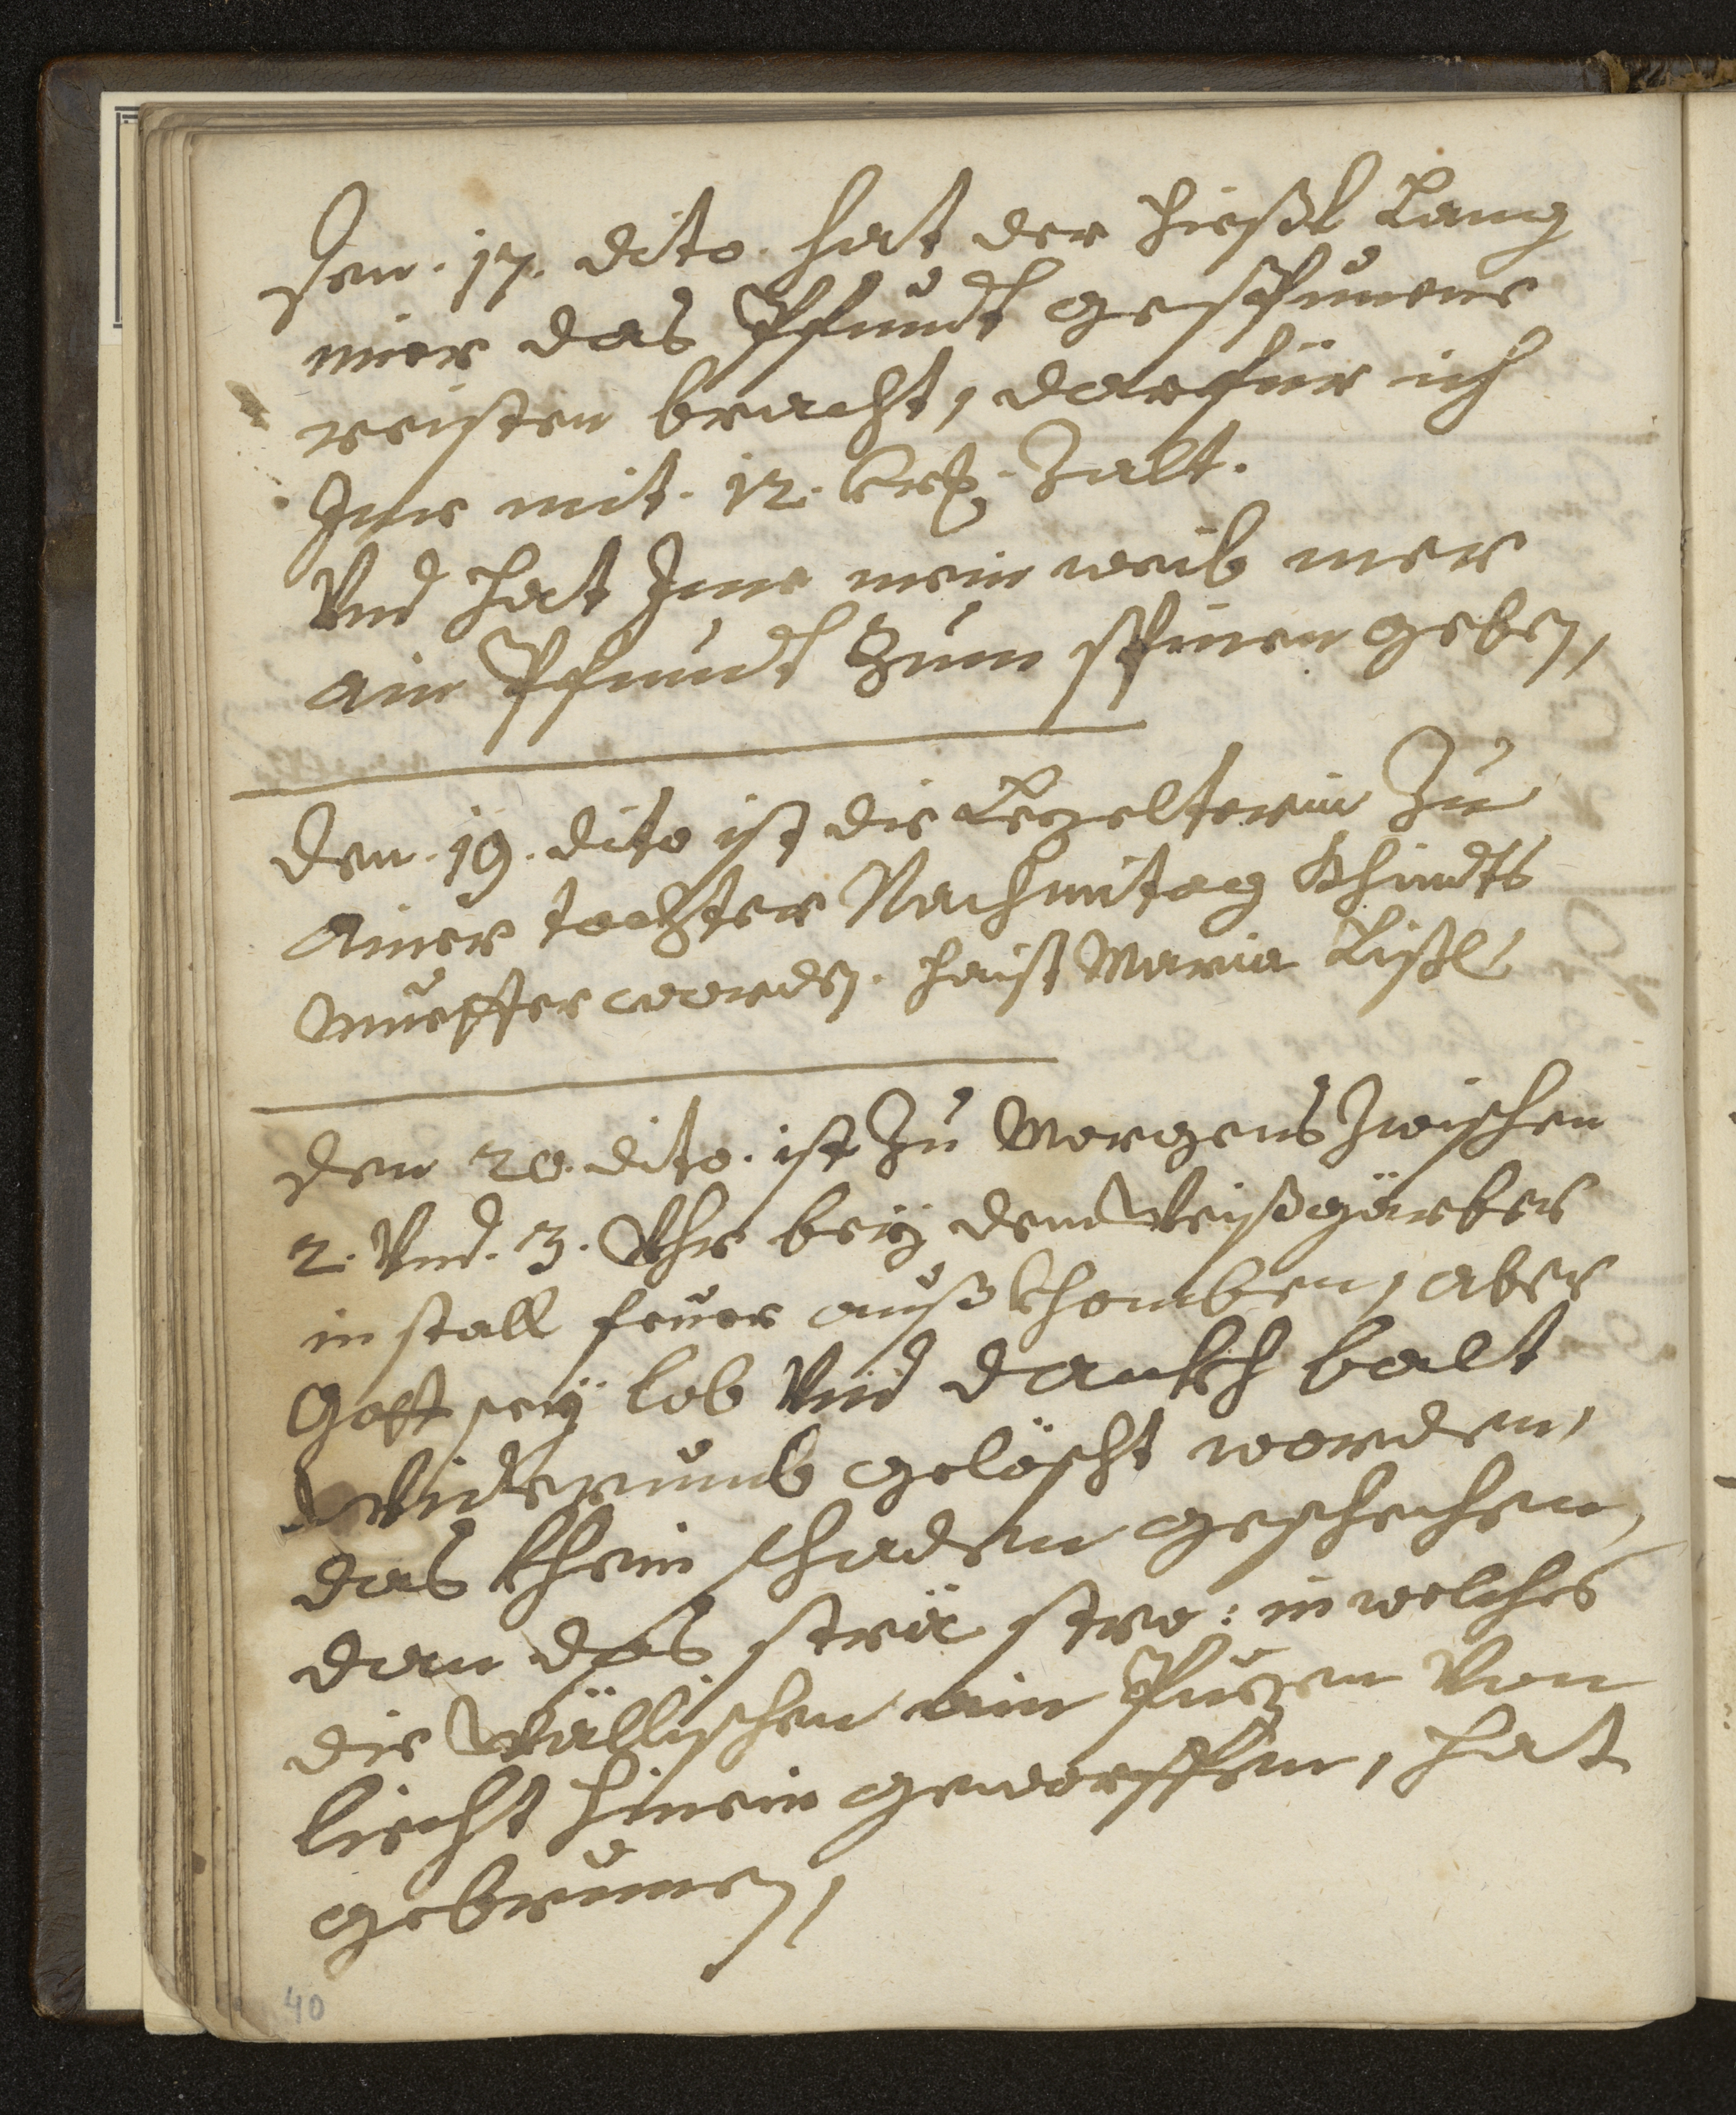 Den. 17. dito. hat der Hießl Lang
mier das Pfundt gespunene
reisten bracht, darfür ich
Ime mit. 12. krz. zalt.
Vnd hat Ime mein weib mer
ain Pfundt Zum spinen geben,
Den. 19. dito ist die Lezelterin Zu
Ainer tochter Nachmitag Khindts
Muetter worden. haist Maria Lisßl
Den 20. dito. ist Zu Morgens Zwischen
2. Vnd. 3. Vhr beÿ dem Weißgärber
in stall feuer auß khomben, aber
Gott seÿ lob Vnd dankh balt
widerumb gelöscht worden,
das khein schaden geschechen,
dan das strä stro: in welches
die Wällischen ain Puzen Von
liecht hinein geworffen, hat
gebrunen,
40